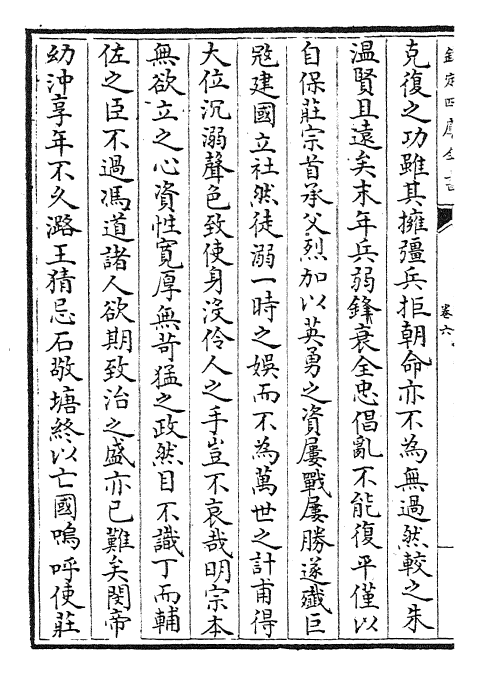 欽定四庫全書
卷六
克復之功雖其擁彊兵拒朝命亦不為無過然較之朱
溫賢且遠矣末年兵弱鋒衰全忠倡亂不能復平僅以
自保莊宗首承父烈加以英勇之資屢戰屢勝遂殲巨
冦建國立社然徒溺一時之娛而不為萬世之計甫得
大位沉溺聲色致使身沒伶人之手豈不哀哉明宗本
無欲立之心資性寛厚無苛猛之政然目不識丁而輔
佐之臣不過馮道諸人欲期致治之盛亦已難矣閔帝
幼沖享年不久潞王猜忌石敬塘終以亡國嗚呼使莊